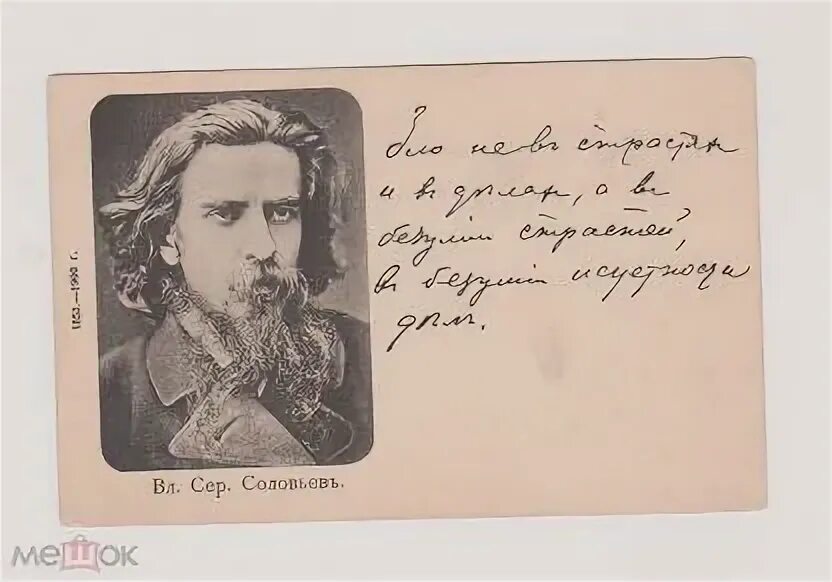 Зло не въ страстях
и въ делах, а въ
безумии страстей,
въ безумии и суетности
дел.
1853.—1900 г.
Вл. Сер. Соловьевъ.
мешок